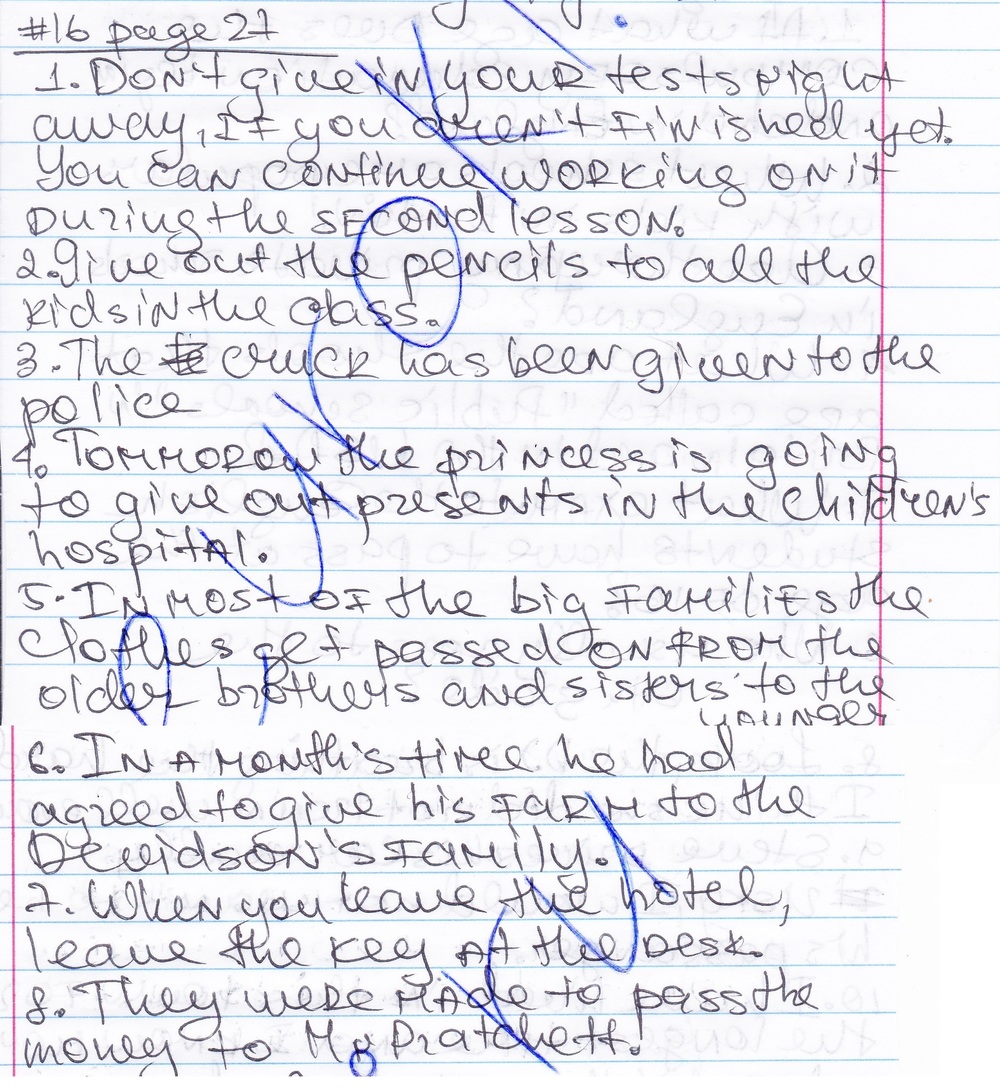 #16 page 27
1. Don't give in your tests right
away, if you aren't finished yet.
You can continue working on it
during the second lesson.
2. give out the pencils to all the
kids in the class.
3. The cruck has been given to the
police
4. Tommorow the princess is going
to give out presents in the children's
hospital.
5. In most of the big families the
clothes get passed on from the
older brothers and sisters to the
younger
6. In a month's time he had
agreed to give his farm to the
Dewidson's family.
7. When you leave the hotel,
leave the key at the desk.
8. They were made to pass the
money to Mr Pratchett!